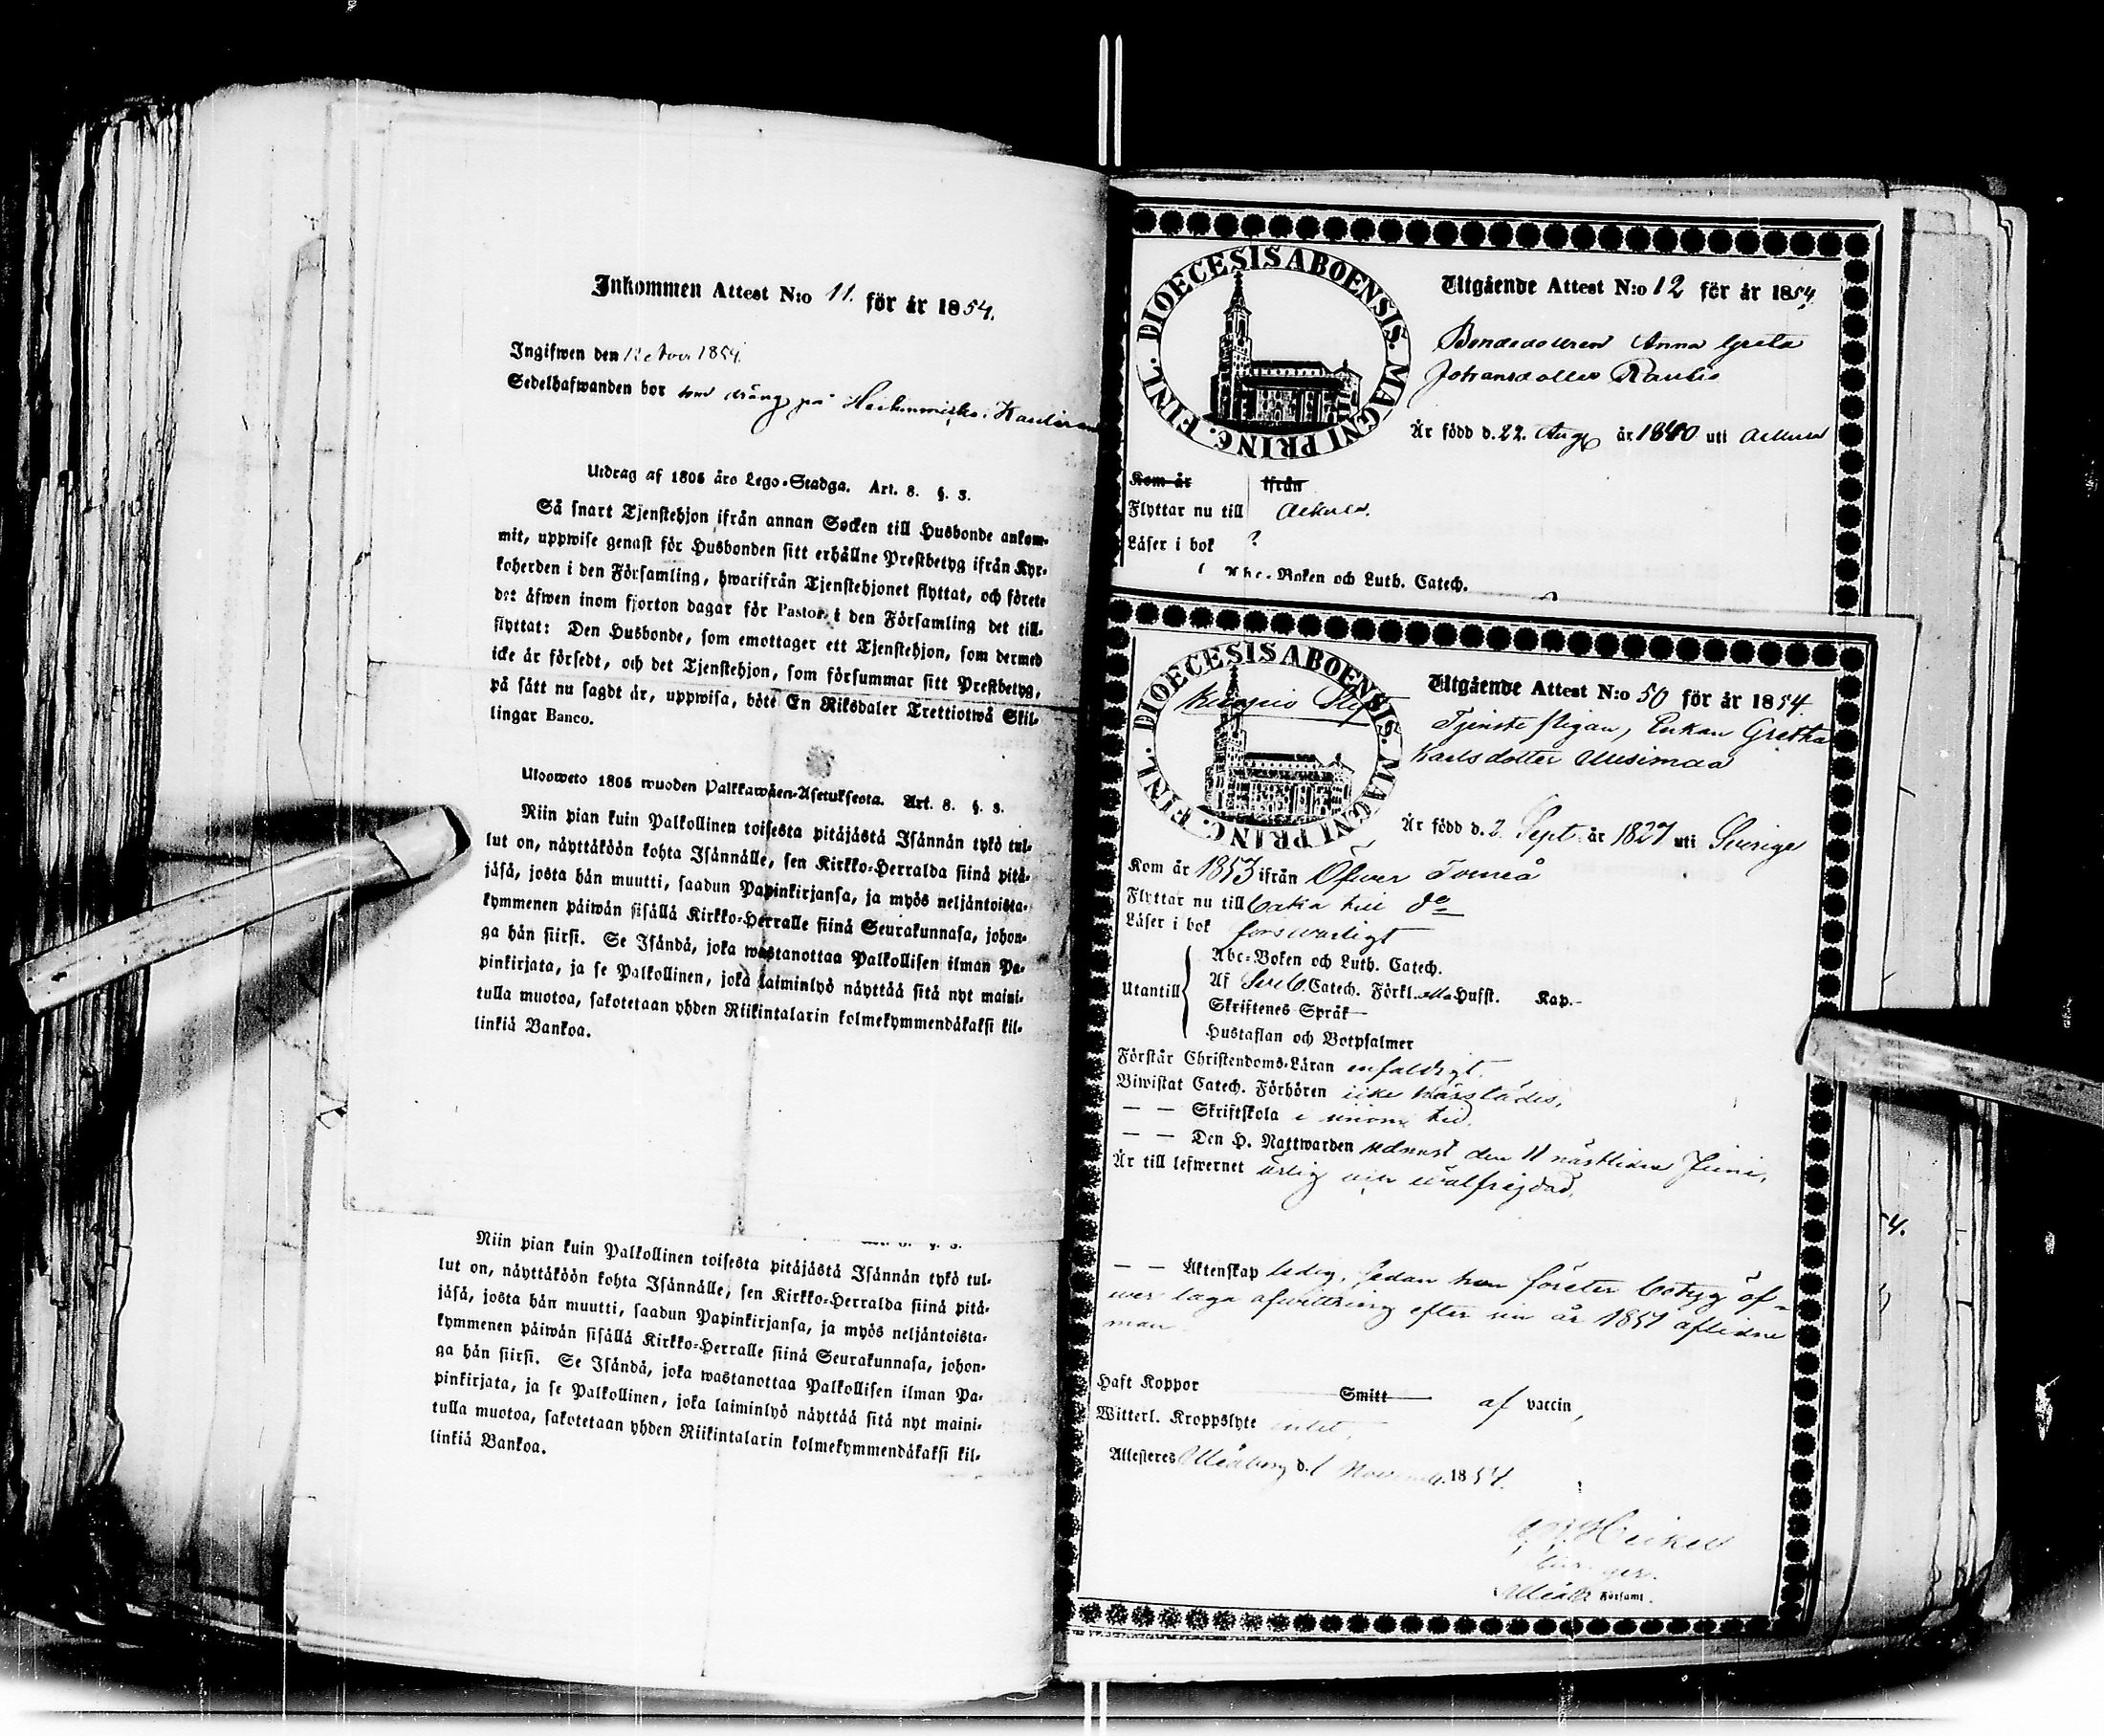 Inkommen Attest N:o 11. för år 1854.
Ingifwen den 12 Nov 1854.
Sedelhafwanden bor som dräng på
Utdrag af 1805 års Lego-Stadga. Art. 8. §. 3.
Så snart Tjenstehjon ifrån annan Socken till Husbonde ankom-
mit, uppwise genast för Husbonden sitt erhållne Prestbetyg ifrån Kyr-
koherden i den Församling, hwarifrån Tjenstehjonet flyttat, och förete
det äfwen inom fjorton dagar för Pastor i den Församling det till-
flyttat: Den Husbonde, som emottager ett Tjenstehjon, som dermed
icke är försedt, och det Tjenstehjon, som försummar sitt Prestbetyg,
på sätt nu sagdt är, uppwisa, böte En Riksdaler Trettiotwå Skil-
lingar Banco.
Ulosweto 1805 wuoden Palkkawäen-Asetuksesta. Art. 8. §. 3.
Niin pian kuin Palkollinen toisesta pitäjästä Isännän tykö tul-
lut on, näyttäköön kohta Isännälle, sen Kirkko-Herralda siinä pitä-
jäsä, josta hän muutti, saadun Papinkirjansa, ja myös neljäntoista-
kymmenen päiwän sisällä Kirkko-Herralle siinä Seurakunnasa, johon-
ga hän siirsi. Se Isändä, joka wastanottaa Palkollisen ilman Pa-
pinkirjata, ja se Palkollinen, joka laiminlyö näyttää sitä nyt maini-
tulla muotoa, sakotetaan yhden Riikintalarin kolmekymmendäkaksi kil-
linkiä Bankoa.
Niin pian kuin Palkollinen toisesta pitäjästä Isännän tykö tul-
lut on, näyttäköön kohta Isännälle, sen Kirkko-Herralda siinä pitä-
jäsä, josta hän muutti, saadun Papinkirjansa, ja myös neljäntoista-
kymmenen päiwän sisällä Kirkko-Herralle siinä Seurakunnasa, johon-
ga hän siirsi. Se Isändä, joka wastanottaa Palkollisen ilman Pa-
pinkirjata, ja se Palkollinen, joka laiminlyö näyttää sitä nyt maini-
tulla muotoa, sakotetaan yhden Riikintalarin kolmekymmendäkaksi kil-
linkiä Bankoa.
DIOECESIS ABOENSIS. MAGNI PRINC. FINL.
Utgående Attest N:o 12 för år 1854.
Bondedottren Anna Greta
Johansdotter Rautio
Är född d. 22. Aug år 1840 uti
Kom år ifrån
Flyttar nu till
Läser i bok ?
Abc-Boken och Luth. Catech.
DIOECESIS ABOENSIS. MAGNI PRINC. FINL.
Utgående Attest N:o 50 för år 1854.
Tjenste pigan, Enkan Gretha
Karlsdotter Uusimaa
Är född d. 2. Sept. år 1827 uti Sverige
Kom år 1853 ifrån Öfver Torneå
Flyttar nu till
Läser i bok försvarligt
Utantill
Abc-Boken och Luth. Catech.
Af Sveb. Catech. Förkl. Hufst. Kap.
Skriftenes Språk
Hustaflan och Botpsalmer
Förstår Christendoms-Läran enfaldigt.
Biwistat Catech. Förhören icke härstädes,
— — Skriftskola
— — Den H. Nattwarden sednast den 11 nästlidne Juni,
Är till lefwernet ärlig och wälfrejdad,
— — Äktenskap ledig, sedan hon företer betyg öf-
wer laga afwittring efter sin år 1851 aflidne
man
Haft Koppor Smitt af vaccin,
Witterl. Kroppslyte intet,
Attesteres Uleåborg d. 1 Novemb. 1854.
Heikel
Uleåb. Församl.
-4.